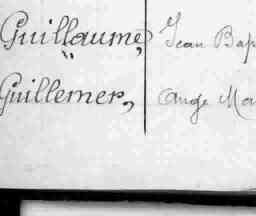 Guillaume, Jean Bap
Guillemer, Ange Ma